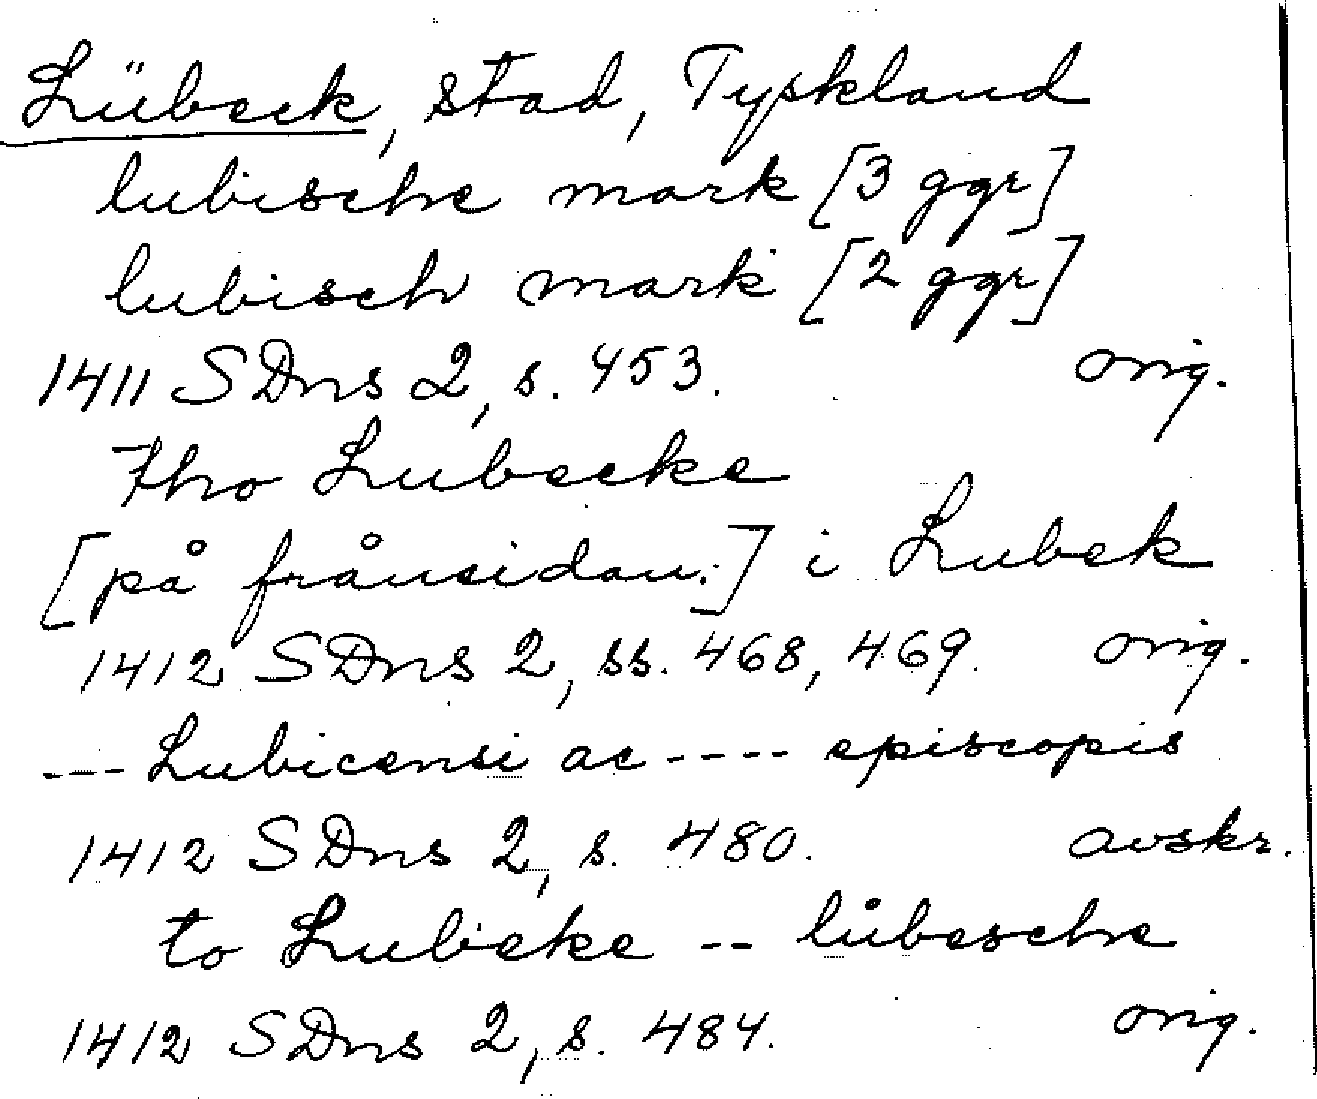 Lübeck, stad, Tyskland
lubische mark [3 ggr]
lubisch mark [2 ggr]
1411 SDns 2, s. 453. orig.
tho Lubecke
[på frånsidan:] i Lubek
1412 SDns 2, ss. 468, 469. orig.
--- Lubicensi ac ---- episcopis
1412 SDns 2, s. 480. avskr.
to Lubeke -- lůbesche
1412 SDns 2, s. 484. orig.